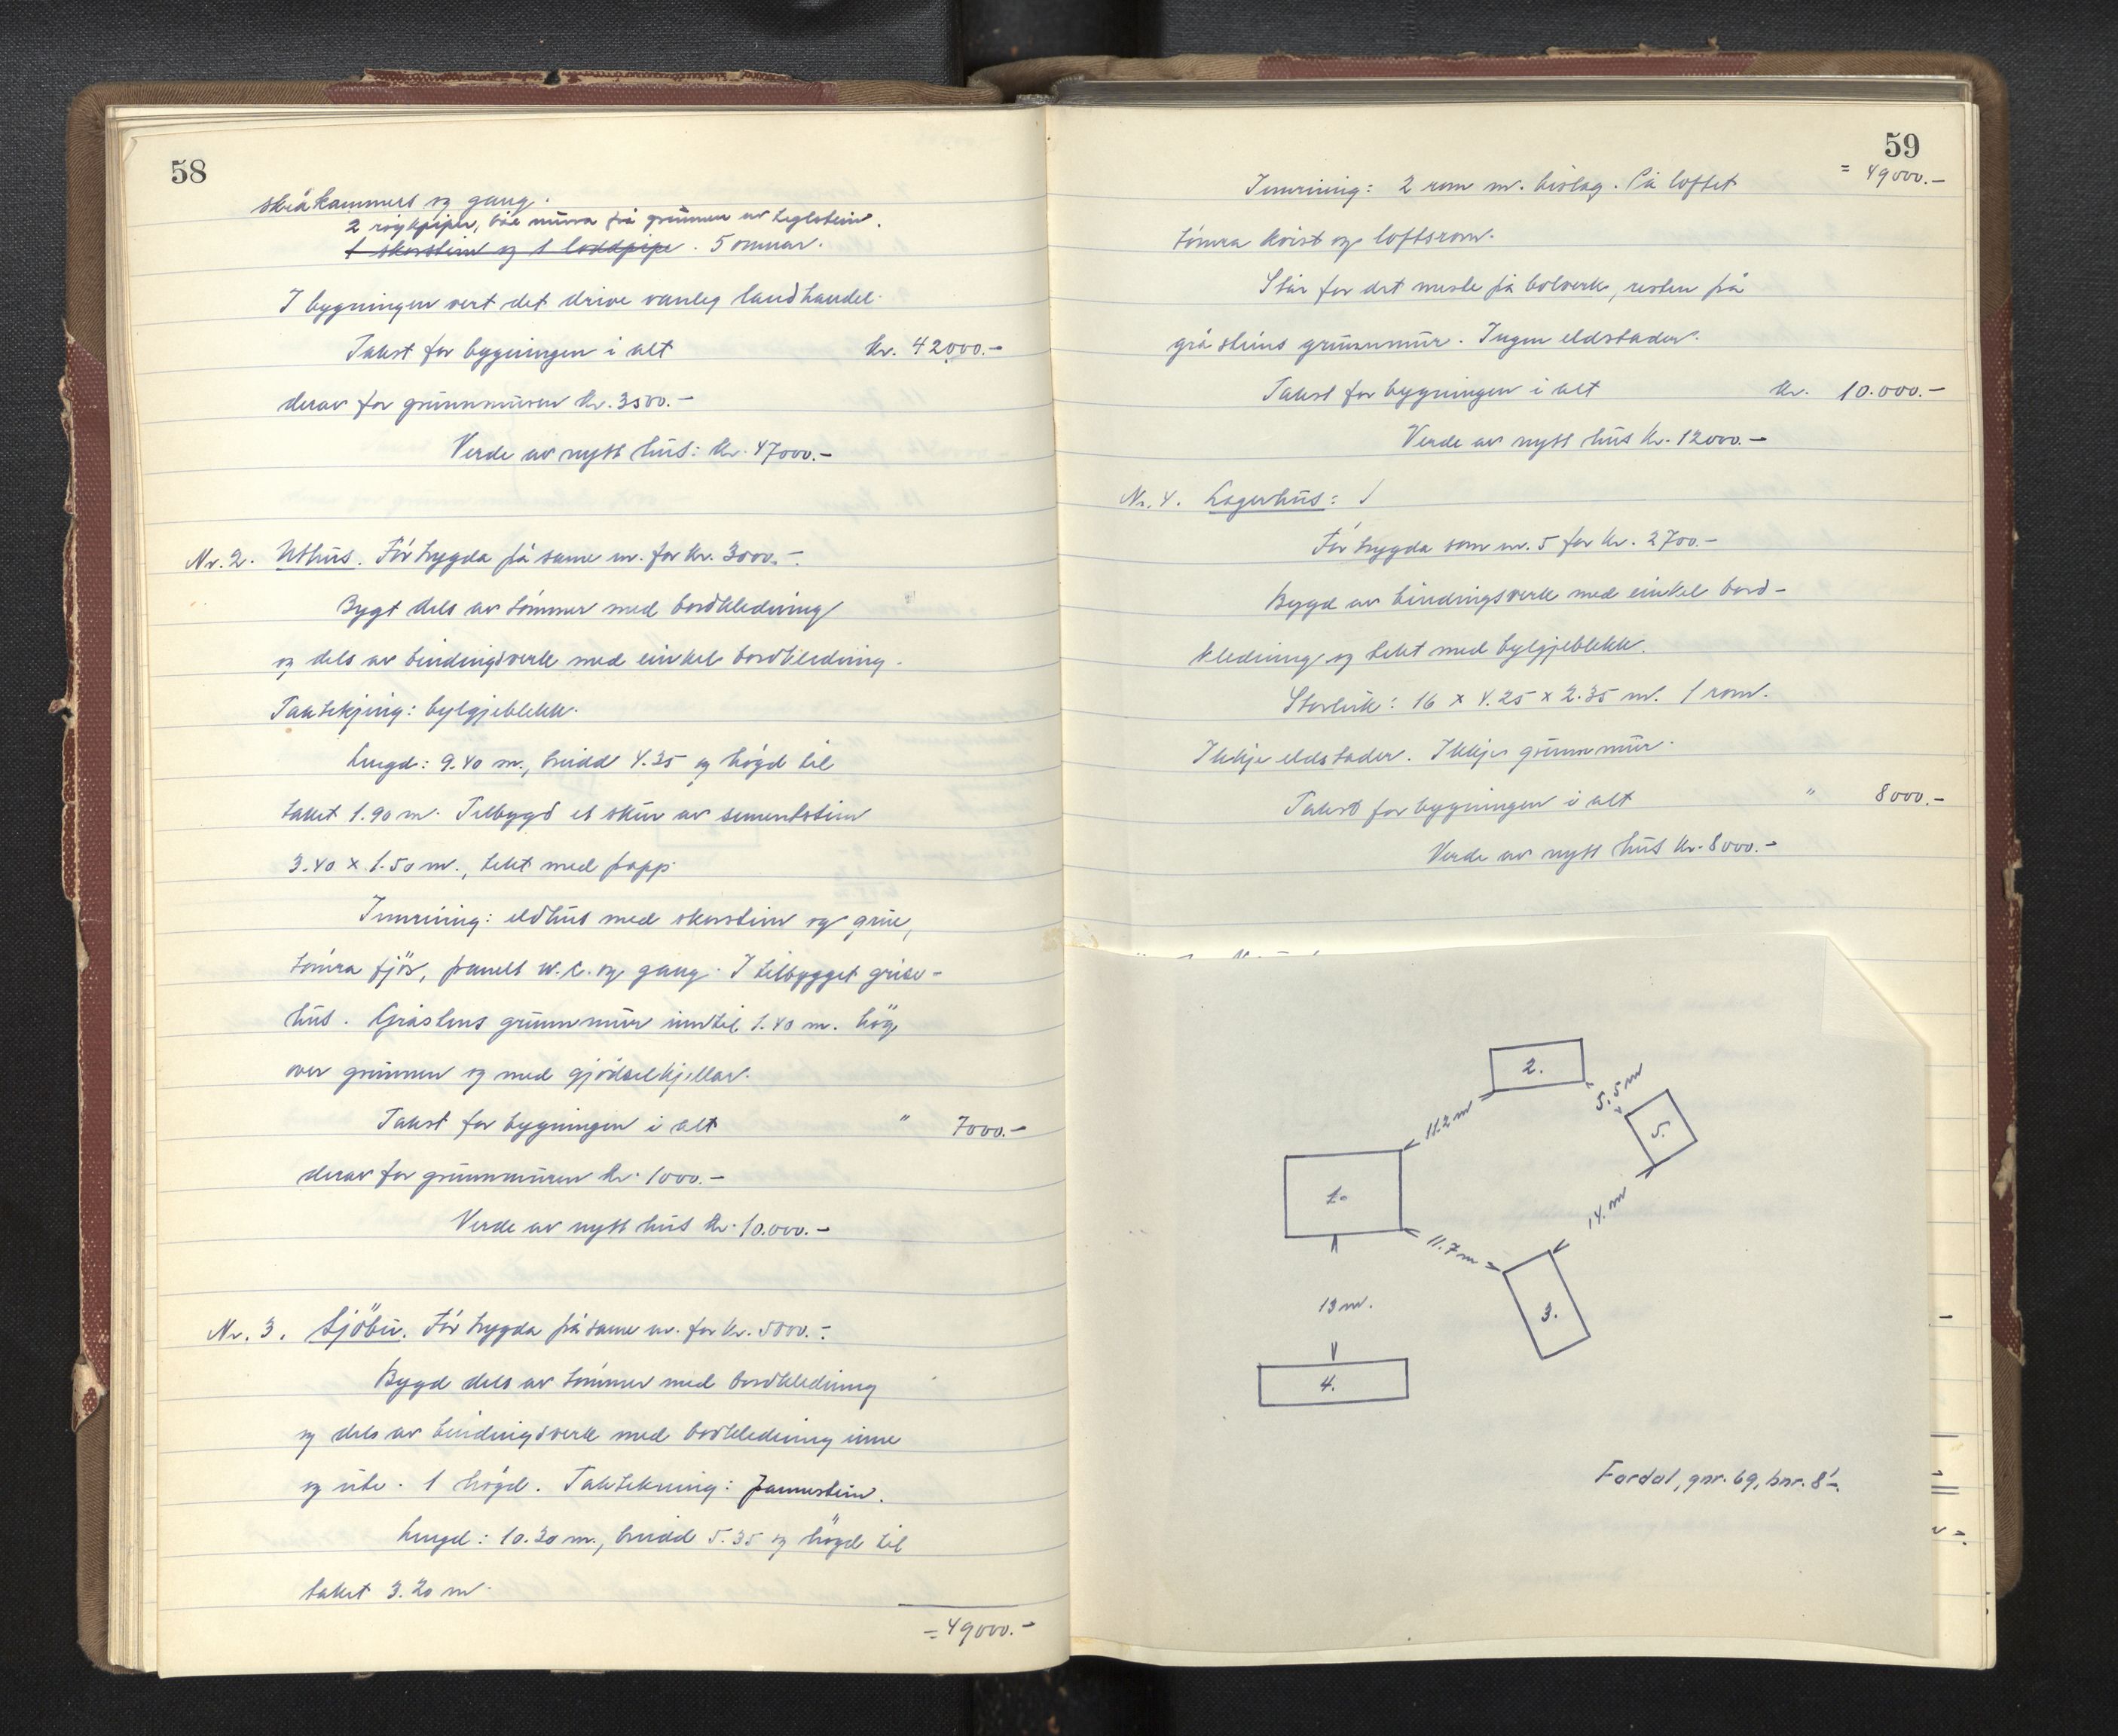 58
skåkammers og gang.
2 røykpipe, båe mura frå grunnen av teglstein.
1 skorstein og 1 loddpipe. 5 omnar.
I bygningen vert det drive vanleg landhandel.
Takst for bygningen i alt kr. 42000.-
derav for grunnmuren kr. 3500.-
Verde av nytt hus: kr. 47000.-
Nr. 2. Uthus. Før trygda på same nr. for kr. 3000.-.
Bygt dels av tømmer med bordkledning
og dels av bindingsverk med einkel bordkledning.
Taktekjing: bylgjeblekk.
Lengd: 9.40 m., breidd 4.35 og høgd til
taket 1.90 m. Tilbygd et skur av sementstein
3.40 x 1.50 m., tekt med papp.
Innreiing: eldhus med skorstein og grue,
tømra fjøs, panelt w.c. og gang. I tilbygget grise-
hus. Gråsteins grunnmur inntil 1.40 m. høg
over grunnen og med gjødselkjellar.
Takst for bygningen i alt " 7000.-
derav for grunnmuren kr. 1000.-
Verde av nytt hus kr. 10.000.-
Nr. 3. Sjöbu. Før trygda på same nr. for kr. 5000.-.
Bygd dels av tømmer med bordkledning
og dels av bindingsverk med bordkledning inne
og ute. 1 høgd. Taktekning: pannestein.
Lengd: 10.30 m., breidd 5.35 og høgd til
taket 3.20 m.
= 49000.-
59
= 49000.-
Innreiing: 2 rom m. bislag. På loftet
tømra kvist og loftsrom.
Står for det meste på bolverk, resten på
gråsteins grunnmur. Ingen eldstader.
Takst for bygningen i alt kr. 10.000.-
Verde av nytt hus kr. 12000.-
Nr. 4. Lagerhus:
Før trygda som nr. 5 for kr. 2700.-
Bygd av bindingsverk med einkel bord-
kledning og tekt med bylgjeblekk.
Storleik: 16 x 4.25 x 2.35 m. 1 rom.
Ikkje eldstader. Ikkje grunnmur.
Takst for bygningen i alt " 8000.-
Verde av nytt hus kr. 8000.-
2.
5.5 m
11.2 m
5.
1.
14. m
11.7 m
13 m.
3.
4.
Fardal, gnr. 69, bnr. 8